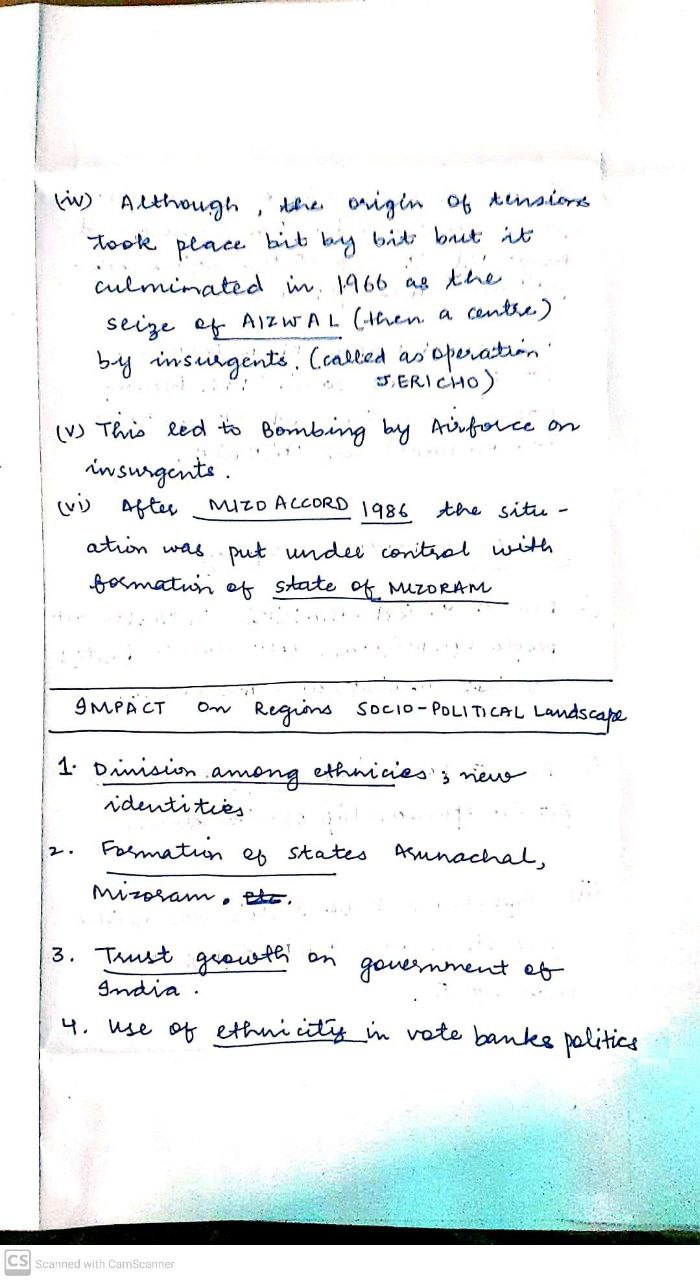 (iv) Although, the origin of tensions
took place bit by bit but it
culminated in 1966 as the
seize of AIZWAL (then a centre)
by insurgents. (called as 'operation
JERICHO)
(v) This led to Bombing by Airforce on
insurgents.
(vi) After MIZO ACCORD 1986 the situ-
ation was put under control with
formation of state of MIZORAM
IMPACT on Regions SOCIO-POLITICAL Landscape
1. Division among ethnicies; new
identities.
2. Formation of states Arunachal,
Mizoram. etc.
3. Trust growth on government of
India.
4. Use of ethnicity in vote banks politics
CS Scanned with CamScanner